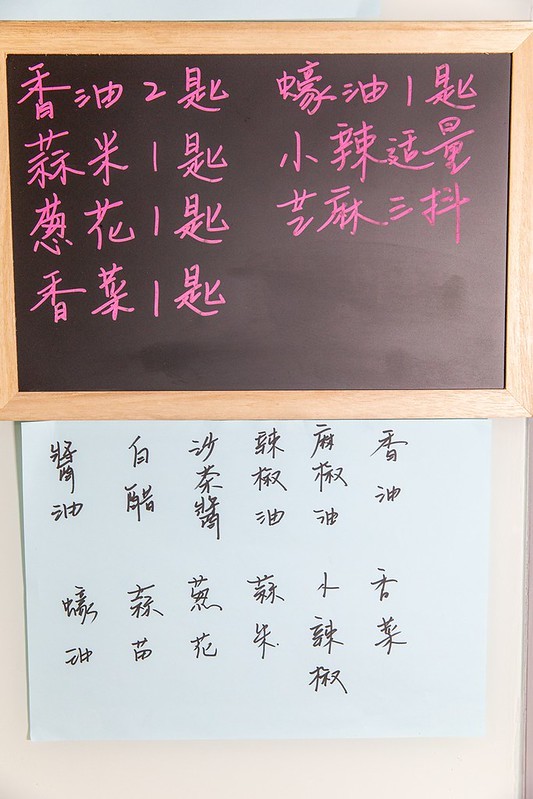 香油2匙
蒜米1匙
蔥花1匙
香菜1匙
蠔油1匙
小辣适量
芝麻三抖
醬油
白醋
沙茶醬
辣椒油
麻椒油
香油
蠔油
蒜苗
蔥花
蒜米
小辣椒
香菜